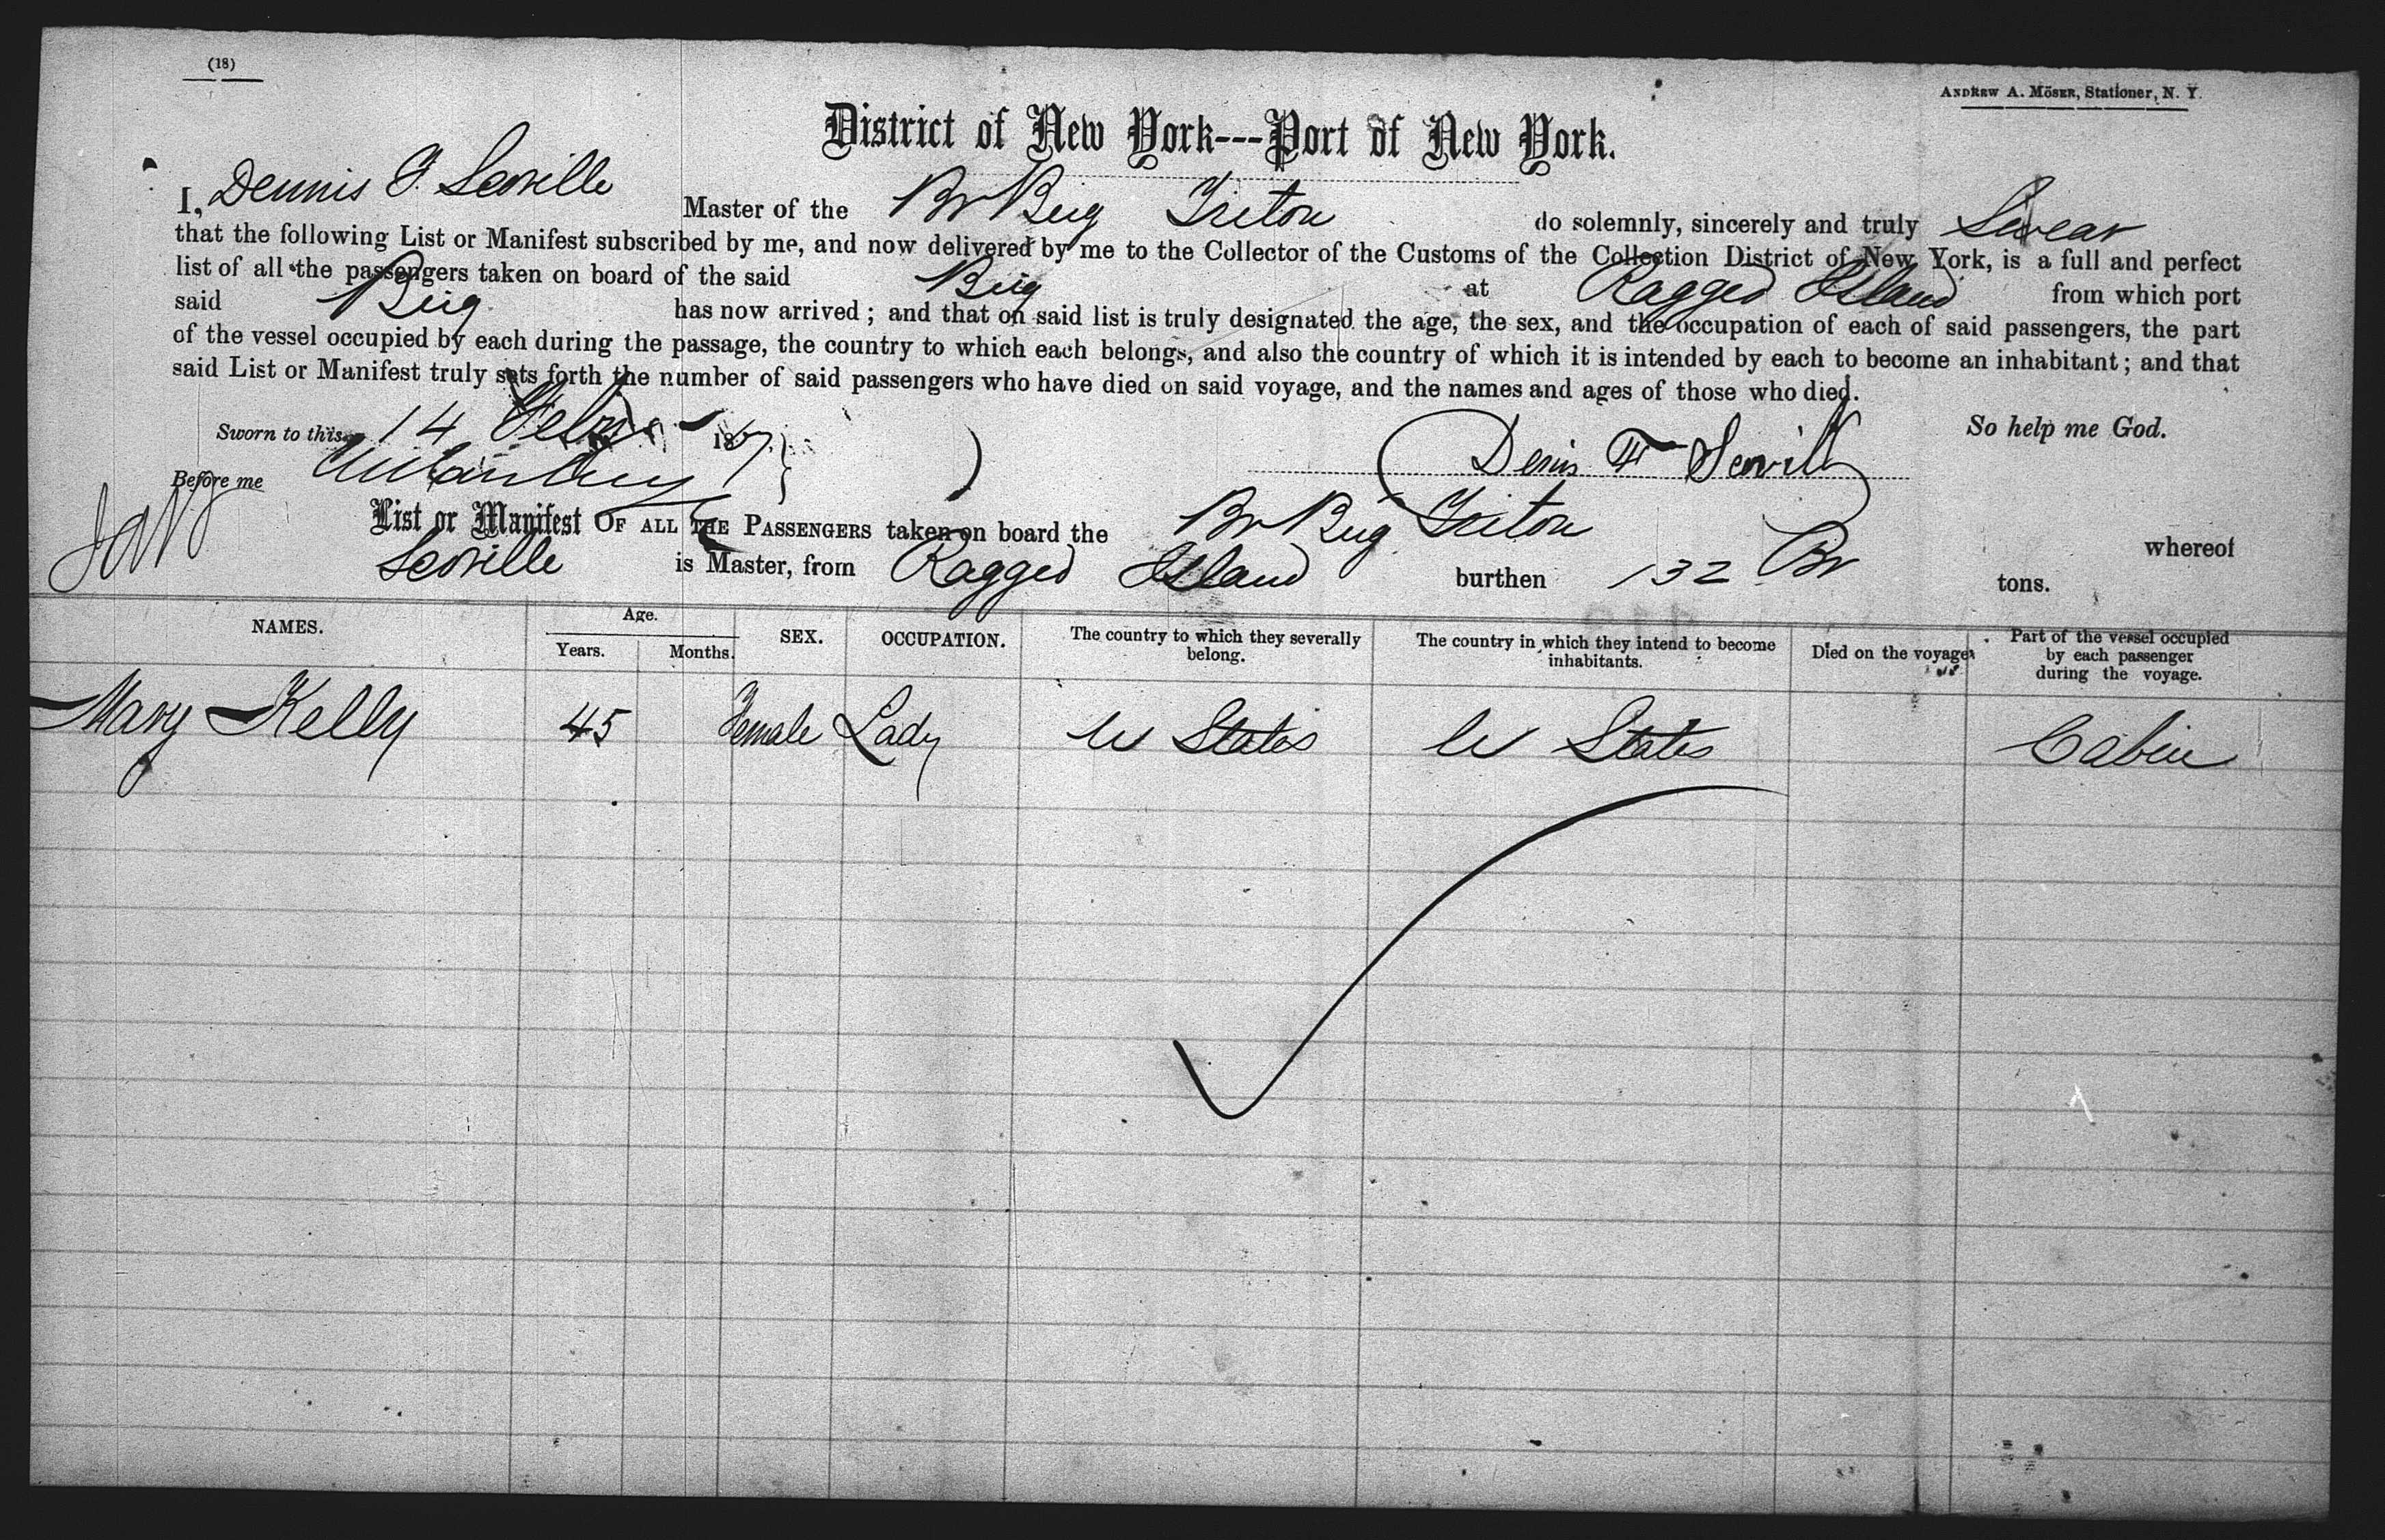 (18)
ANDREW A. MÖSER, Stationer, N. Y.
District of New York---Port of New York.
I, Dennis F. Scoville Master of the Br Brig Triton do solemnly, sincerely and truly Swear
that the following List or Manifest subscribed by me, and now delivered by me to the Collector of the Customs of the Collection District of New York, is a full and perfect
list of all the passengers taken on board of the said Brig at Ragged Island from which port
said Brig has now arrived; and that on said list is truly designated the age, the sex, and the occupation of each of said passengers, the part
of the vessel occupied by each during the passage, the country to which each belongs, and also the country of which it is intended by each to become an inhabitant; and that
said List or Manifest truly sets forth the number of said passengers who have died on said voyage, and the names and ages of those who died.
Sworn to this 14 186 So help me God.
Before me Denis F Scovill
List or Manifest OF ALL THE PASSENGERS taken on board the Br Brig Triton whereof
Scoville is Master, from Ragged Island burthen 132 Br tons.
NAMES. Age. Years. Months. SEX. OCCUPATION. The country to which they severally belong. The country in which they intend to become inhabitants. Died on the voyage. Part of the vessel occupied by each passenger during the voyage.
Mary Kelly 45 Female Lady U States U States Cabin